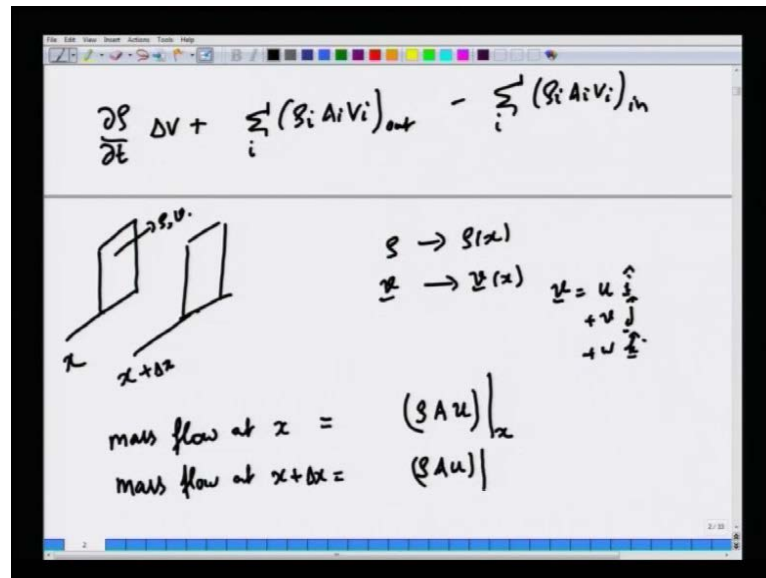 File Edit View Insert Actions Tools Help
B I
∂ρ/∂t ΔV + Σ_i (ρi Ai Vi)out - Σ_i (ρi Ai Vi)in
→ρ, v.
ρ → ρ(x)
v → v(x)
v = u î
+ v ĵ
+ w k̂.
x
x+Δx
mass flow at x = (ρAu)|x
mass flow at x+Δx = (ρAu)|
2 / 33
2